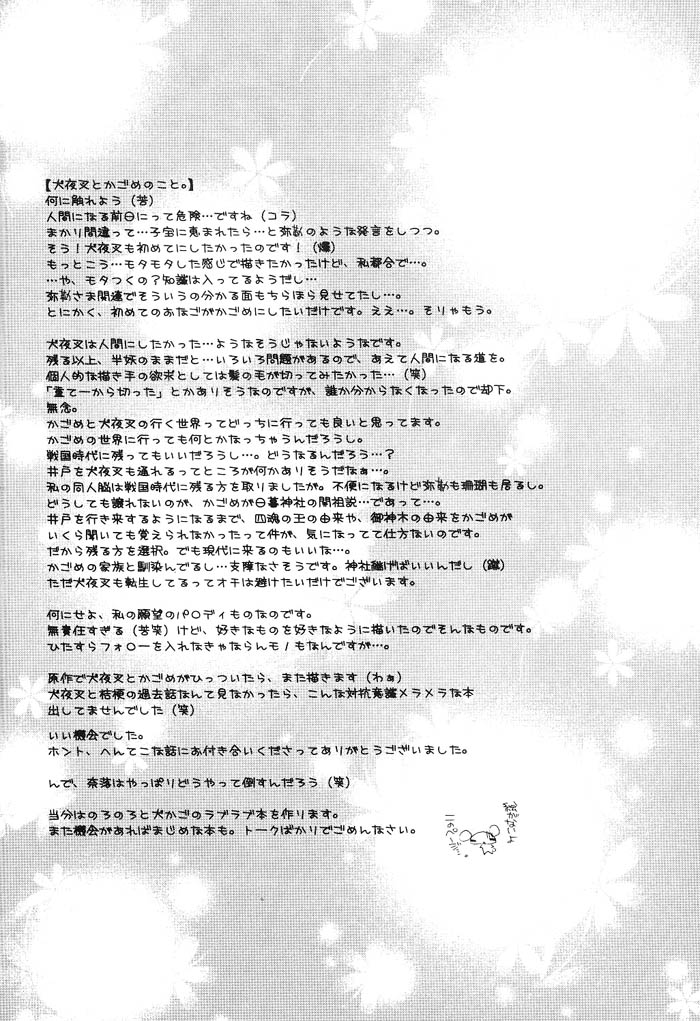 【犬夜叉とかごめのこと。】
何に触れよう（苦）
人間になる前日にって危険…ですね（コラ）
まかり間違って…子宝に恵まれたら…と弥勒のような発言をしつつ。
そう！犬夜叉も初めてにしたかったのです！（爆）
もっとこう…モタモタした感じで描きたかったけど、私都合で…。
…や、モタつくの？知識は入ってるようだし…
弥勒さま間違でそういうの分かる面もちらほら見せてたし…。
とにかく、初めてのおなごがかごめにしたいだけです。ええ…。そりゃもう。
犬夜叉は人間にしたかった…ようなそうじゃないようなです。
残る以上、半妖のままだと…いろいろ問題があるので、あえて人間になる道を。
個人的な描き手の欲求としては髪の毛が切ってみたかった…（笑）
「重て〜から切った」とかありそうなのですが、誰か分からなくなったので却下。
無念。
かごめと犬夜叉の行く世界ってどっちに行っても良いと思ってます。
かごめの世界に行っても何とかなっちゃうんだろうし。
戦国時代に残ってもいいだろうし…。どうなるんだろう…？
井戸を犬夜叉も通れるってところが何かありそうだなぁ…。
私の同人脳は戦国時代に残る方を取りましたが。不便になるけど弥勒も珊瑚も居るし。
どうしても譲れないのが、かごめが日暮神社の開祖説…であって…。
井戸を行き来するようになるまで、四魂の玉の由来や、御神木の由来をかごめが
いくら聞いても覚えられなかったって件が、気になってて仕方ないのです。
だから残る方を選択。でも現代に来るのもいいな…。
かごめの家族と馴染んでるし…支障なさそうです。神社継げばいいんだし（蹴）
ただ犬夜叉も転生してるってオチは避けたいだけでございます。
何にせよ、私の願望のパ○ディものなのです。
無責任すぎる（苦笑）けど、好きなものを好きなように描いたのでそんなものです。
ひたすらフォ○ーを入れなきゃならんモノもなんですが…。
原作で犬夜叉とかごめがひっついたら、また描きます（わぁ）
犬夜叉と桔梗の過去話なんて見なかったら、こんな対抗意識メラメラな本
出してませんでした（笑）
いい機会でした。
ホント、へんてこな話にお付き合いくださってありがとうございました。
んで、奈落はやっぱりどうやって倒すんだろう（笑）
当分はのろのろと犬かごのラブラブ本を作ります。
また機会があればまじめな本も。トークばかりでごめんなさい。